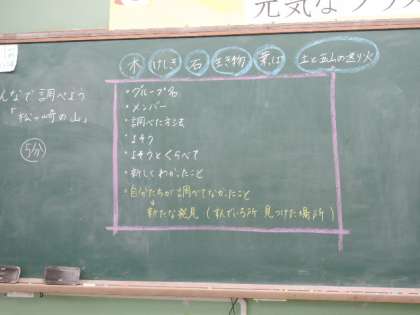 元気なクラス
木 けしき 石 生き物 葉っぱ 土と五山の送り火
んなで調べよう
「松ヶ崎の山」
5分
・グループ名
・メンバー
・調べた方法
・よそう
・よそうとくらべて
・新しくわかったこと
・自分たちが調べてなかったこと
新たな発見(すんでいる所 見つけた場所)